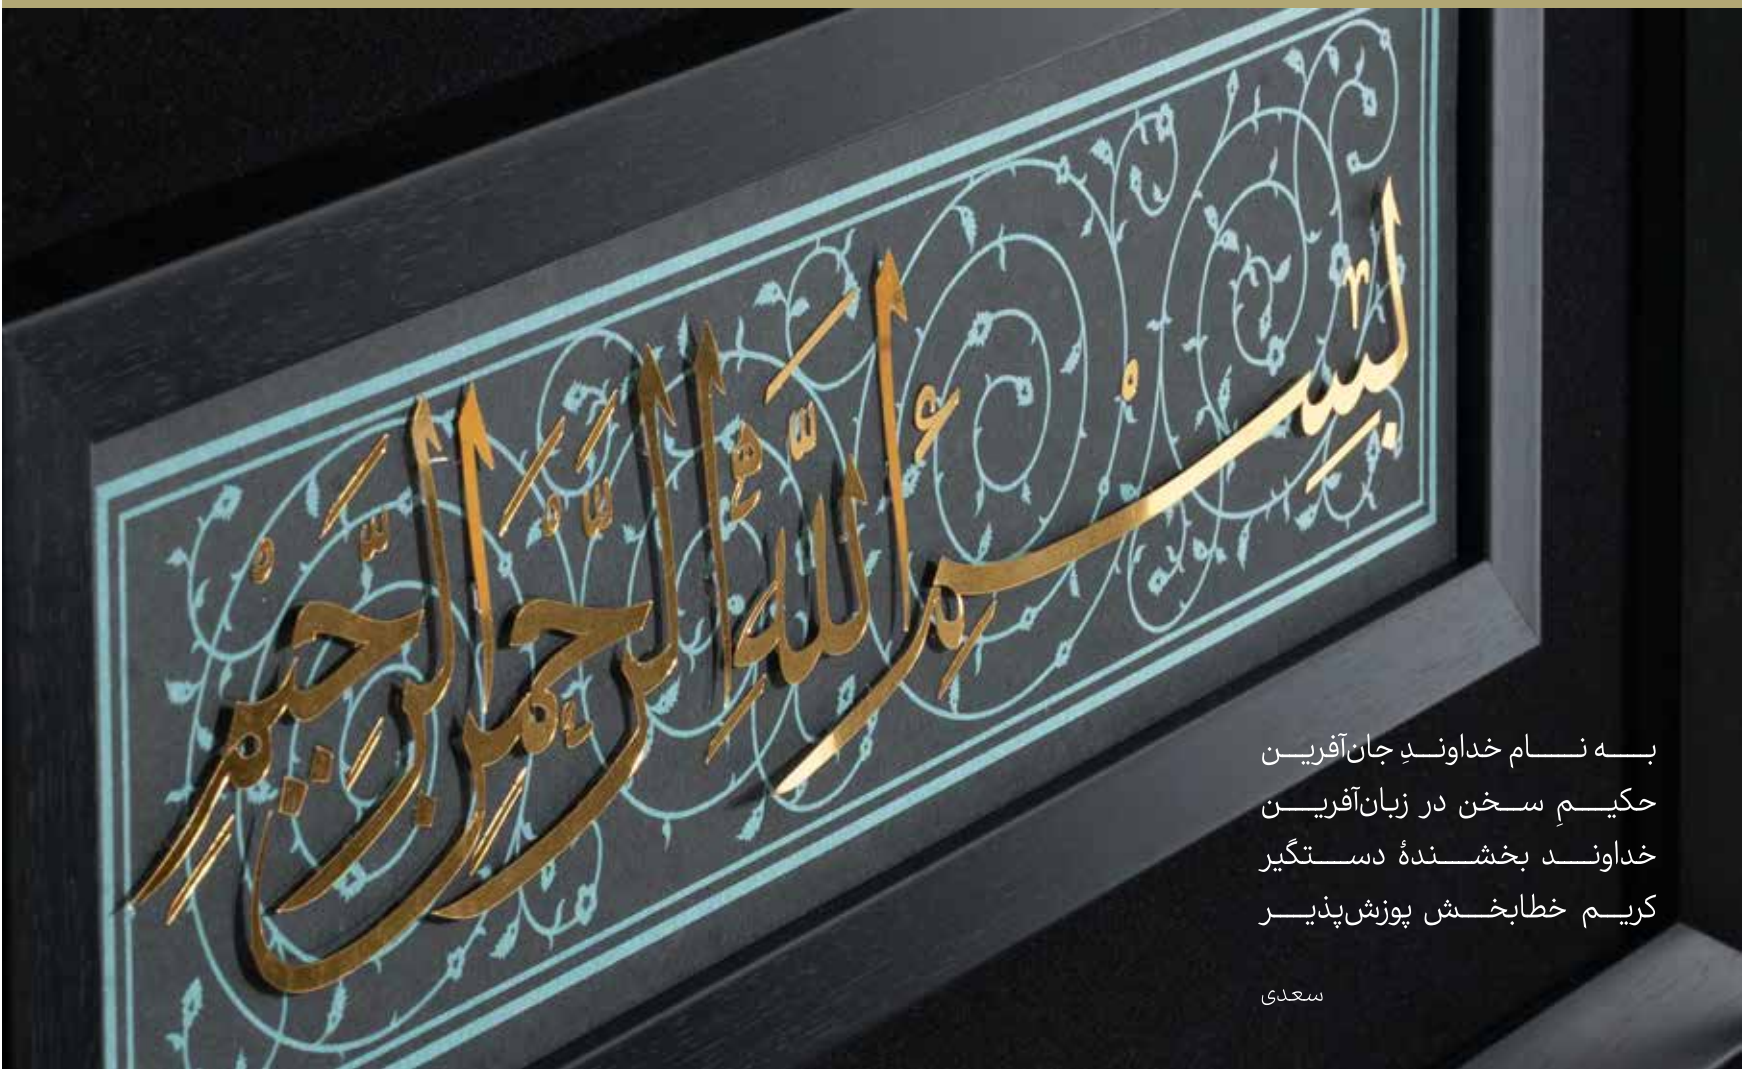 بِسْمِ اللّٰهِ الرَّحْمٰنِ الرَّحِيمِ
به نام خداوندِ جان‌آفرین
حکیمِ سخن در زبان‌آفرین
خداوند بخشندهٔ دستگیر
کریم خطابخش پوزش‌پذیر
سعدی